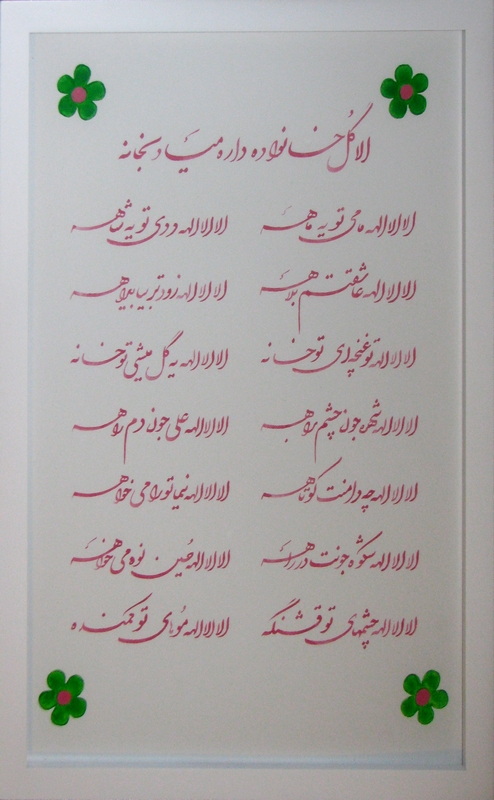 الا گل خانواده داره میاد بخانه
لا لا لا لا له مامی تو یه ماهه لا لا لا لا له ددی تو یه شاهه
لا لا لا لا له عاشقتم بلاهه لا لا لا لا له زودتر بیا بلاهه
لا لا لا لا له تو غنچه ای تو خانه لا لا لا لا له یه گل میشی تو خانه
لا لا لا لا له جون چشم براهه لا لا لا لا له علی جون دم راهه
لا لا لا لا له چه دامنت کوتاهه لا لا لا لا له نیما تو را می خواهه
لا لا لا لا له شکوه جونت در راهه لا لا لا لا له حسین نوه می خواهه
لا لا لا لا له چشمهای تو قشنگه لا لا لا لا له موهای تو کمنده